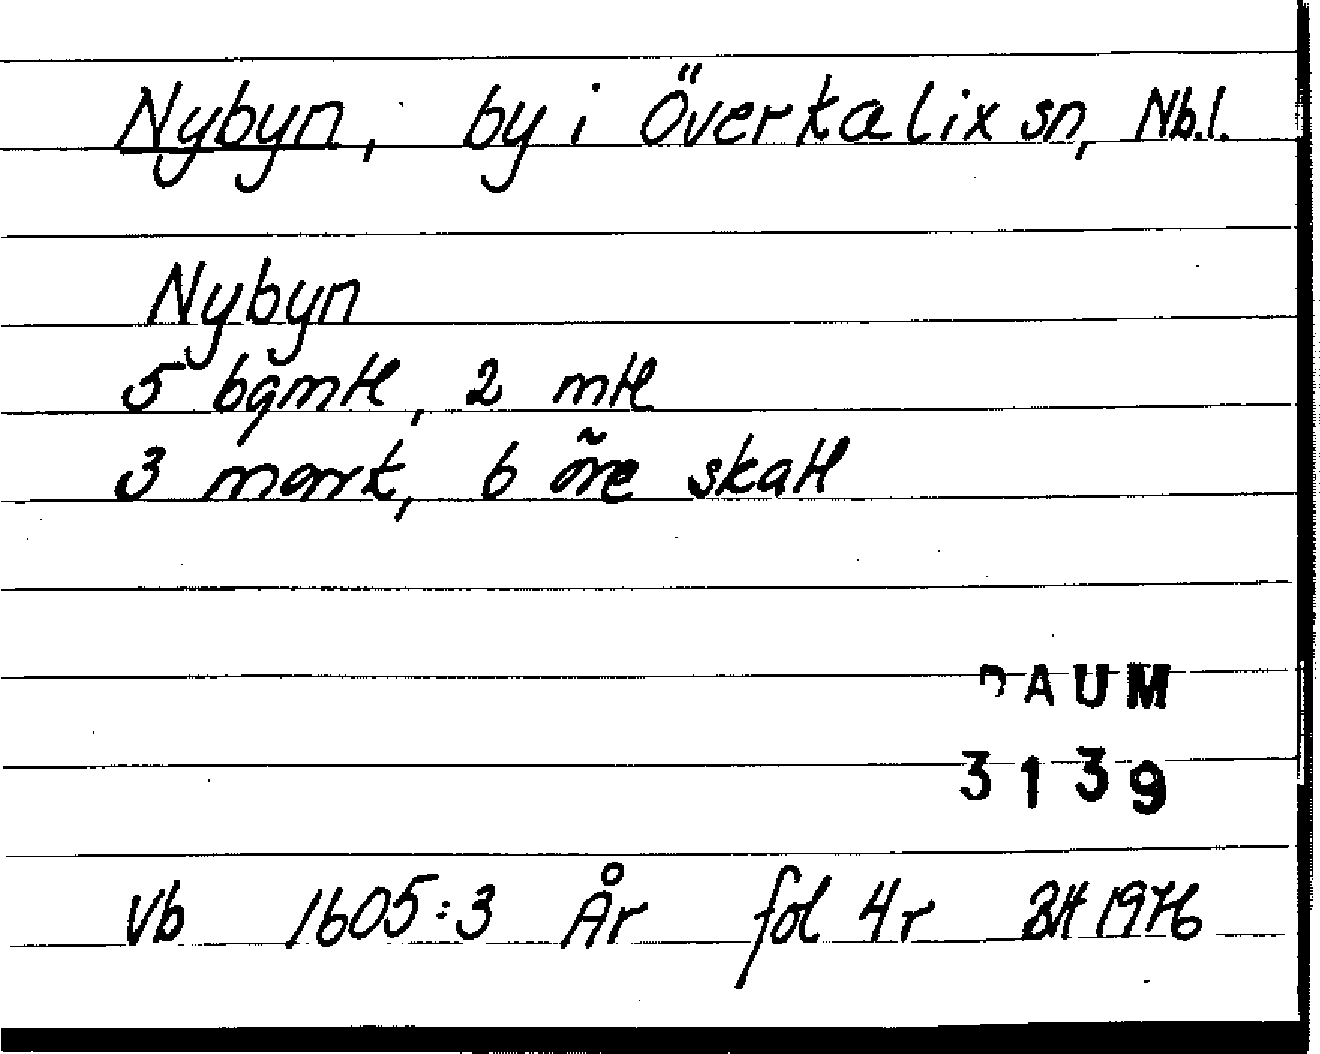 Nybyn, by i Överkalix sn, Nb.l.
Nybyn
5 bgmtl, 2 mtl
3 mark, 6 öre skatt
DAUM
3139
Vb 1605:3 År fol 4r BH 1976